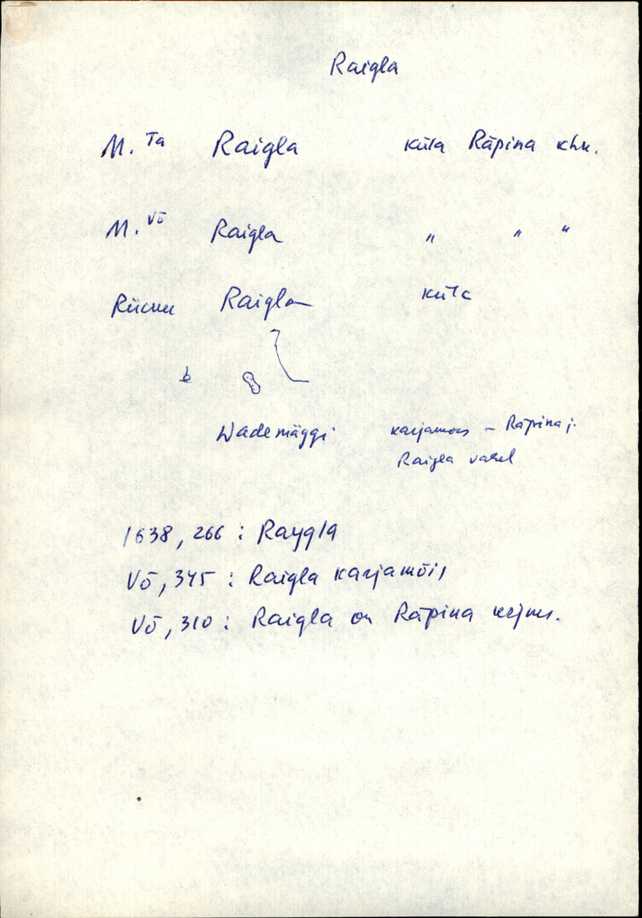 Raigla
M. Ta Raigla küla Räpina khk.
M. Võ Raigla " " "
Rücker Raigla küla
Wademäggi karjamõis – Räpina j.
Raigla vahel
1638, 266 : Raygla
Võ, 345 : Raigla karjamõis
Võ, 310 : Raigla on Räpina krjms.